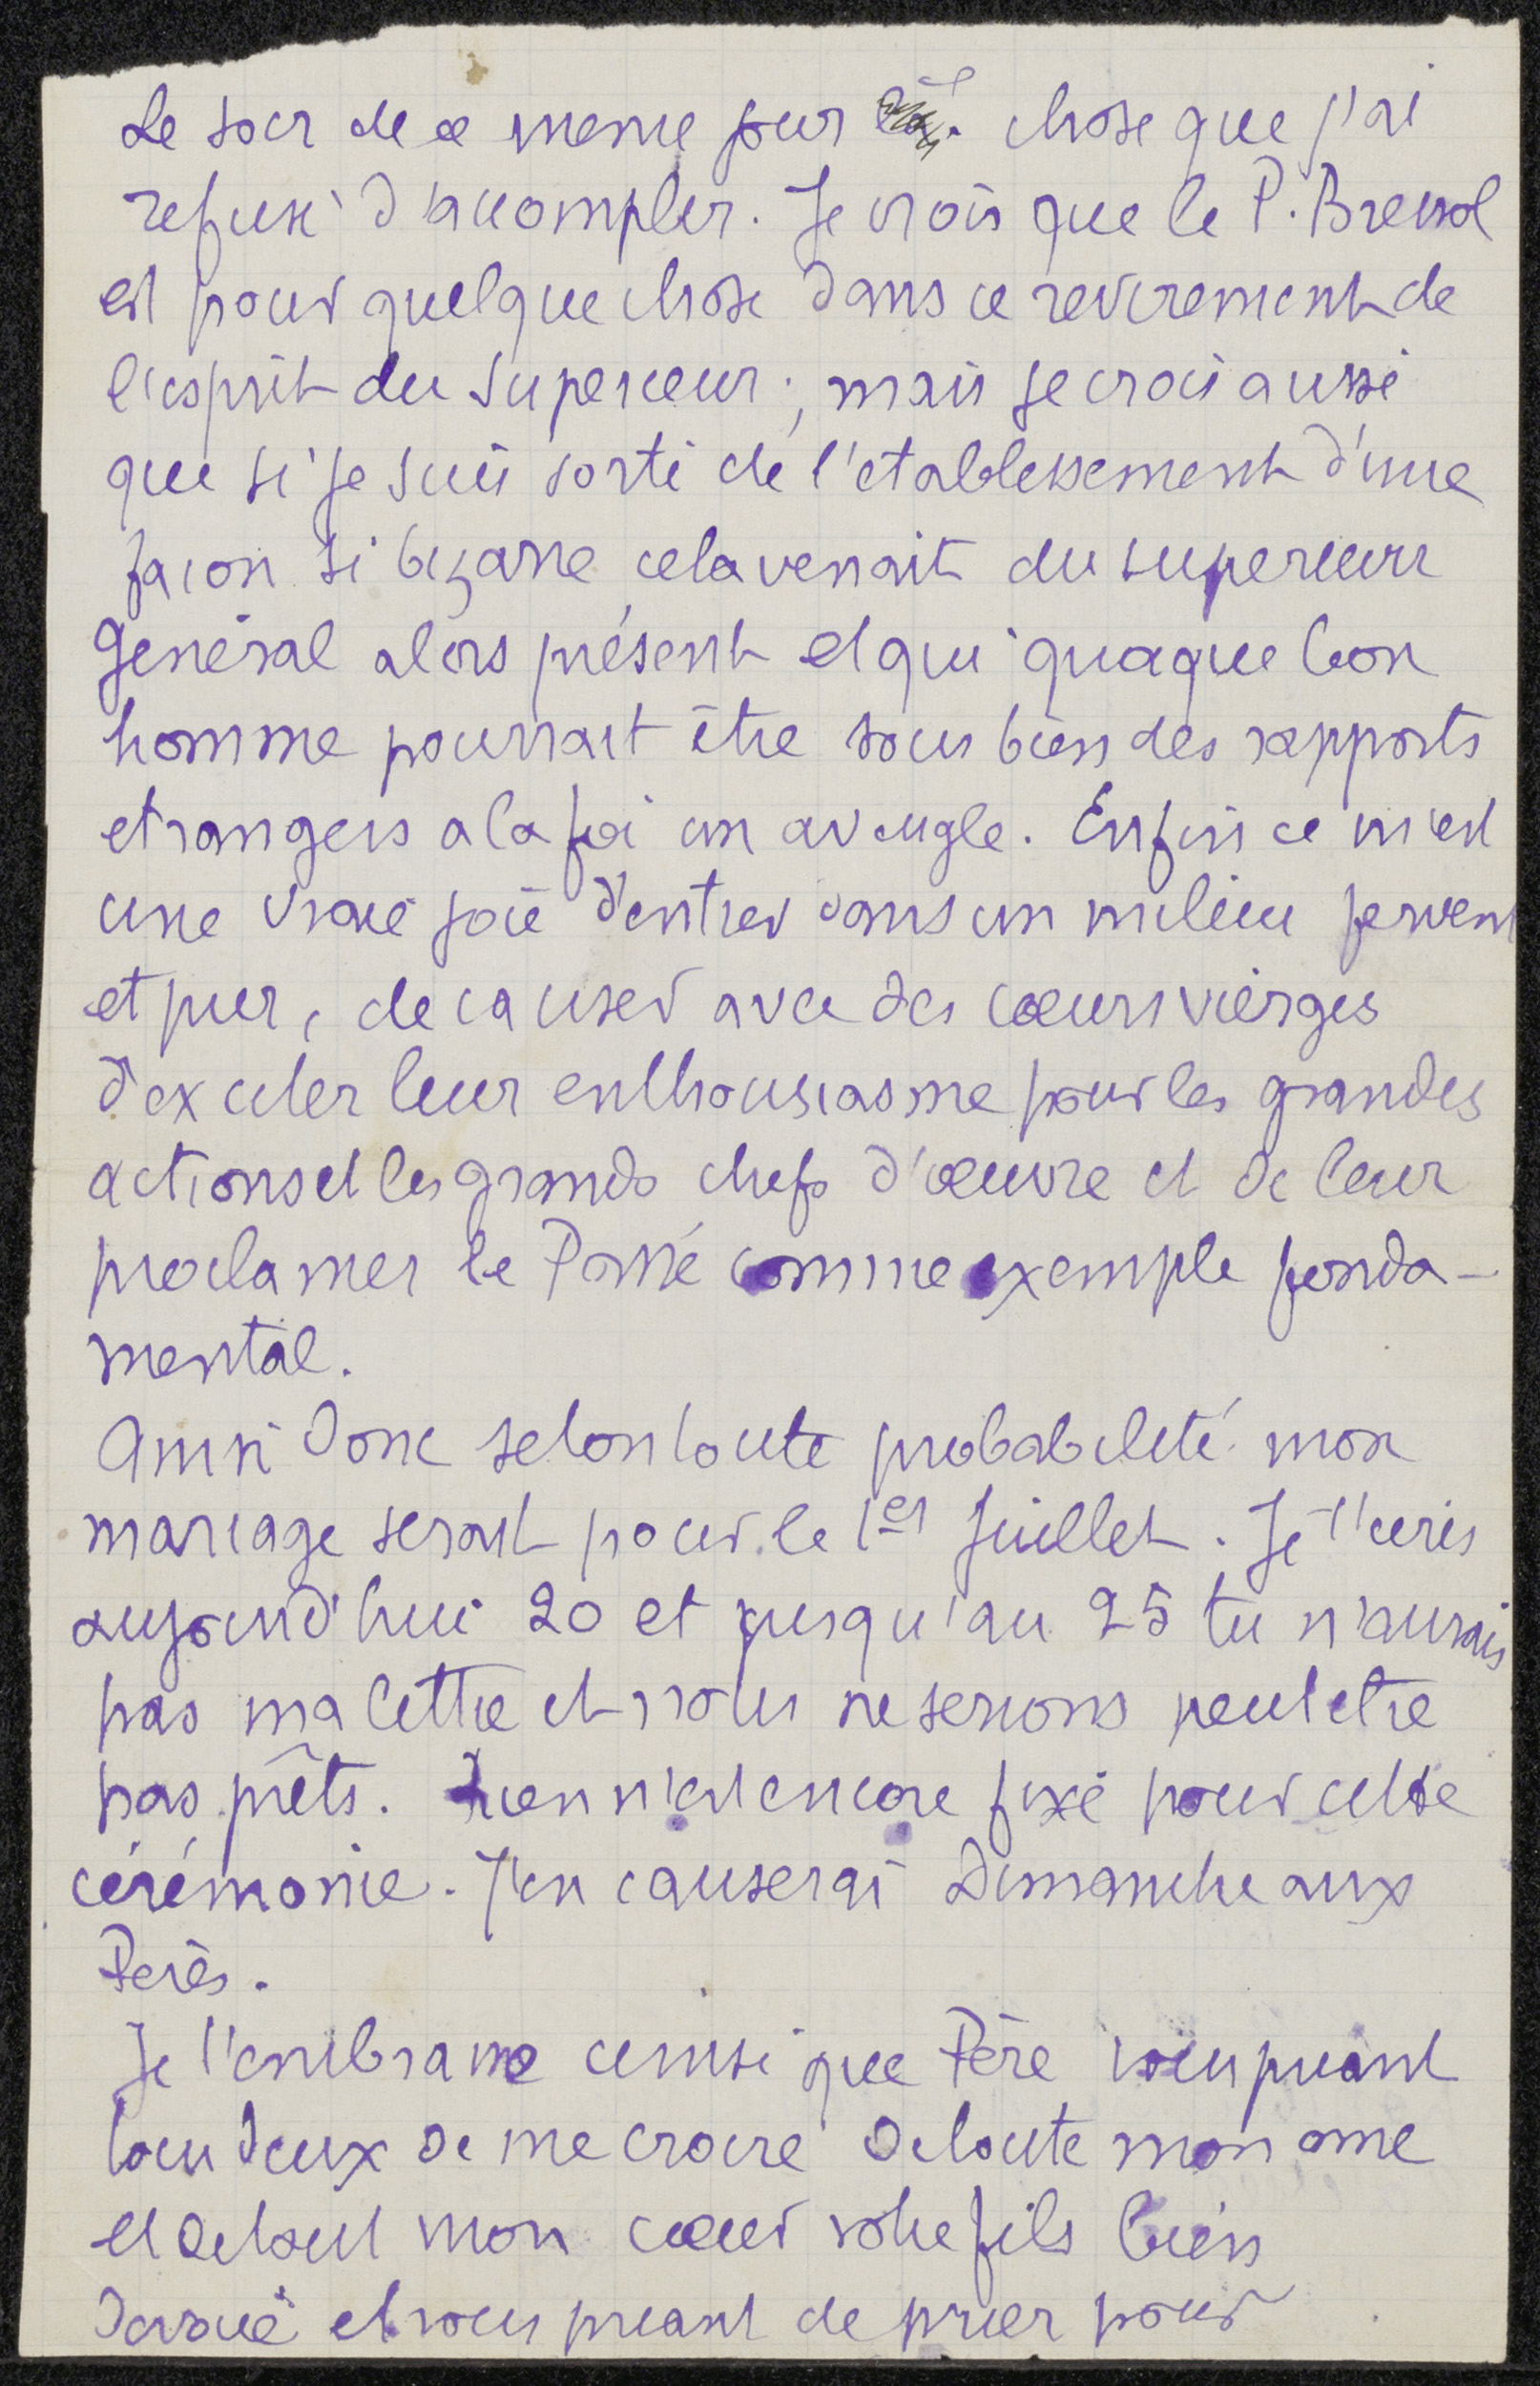 Le soir de ce meme jour là. chose que j'ai
refusé d'accomplir. Je crois que le P.
est pour quelque chose dans ce revirement de
l'esprit du Superieur ; mais je crois aussi
que si je suis sorti de l'etablissement d'une
facon si bizarre cela venait du superieur
Général alors présent et qui quoique bon
homme pourrait être sous bien des rapports
etrangers a la foi un aveugle. Enfin ce m'est
une vraie joie d'entrer dans un milieu fervent
et pur, de causer avec des cœurs vierges
d'exciter leur enthousiasme pour les grandes
actions et les grands chefs d'œuvre et de leur
proclamer le Passé comme exemple fonda-
mental.
Ainsi donc selon toute probabilité mon
mariage serait pour le 1er Juillet. Je t'ecris
aujourd'hui 20 et jusqu'au 25 tu n'aurais
pas ma lettre et nous ne serions peut etre
pas prêts. Rien n'est encore fixé pour cette
cérémonie. J'en causerai Dimanche aux
Perès.
Je t'embrasse ainsi que Père vous priant
tous deux de me croire de toute mon ame
et de tout mon cœur votre fils bien
devoué et vous priant de prier pour